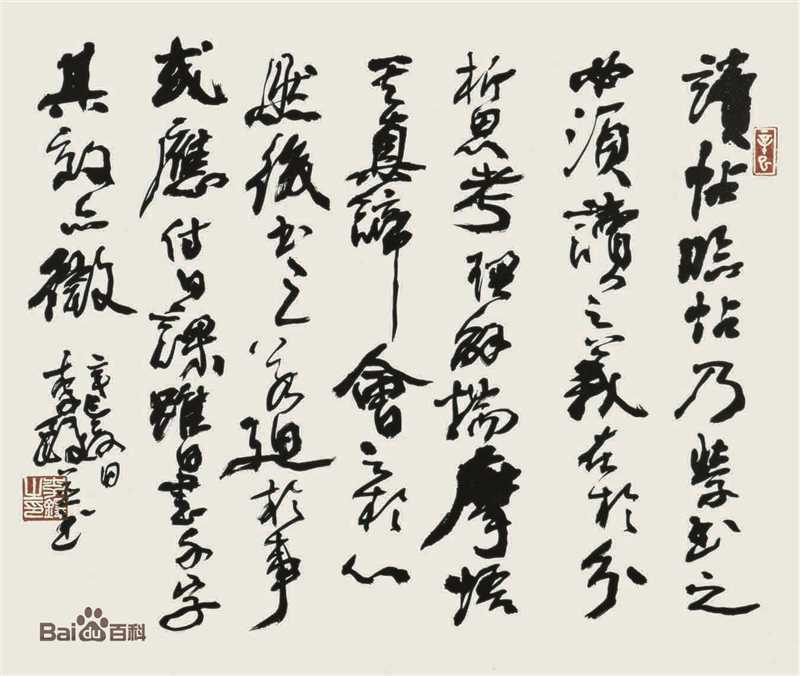 讀帖臨帖乃學書之
必須讀之義在於分
析思考理解揣摩悟
其真諦會之於心
然後書之若迫於事
或應付日課雖日書千字
其效亦微
辛巳夏日
李 書
Baidu百科